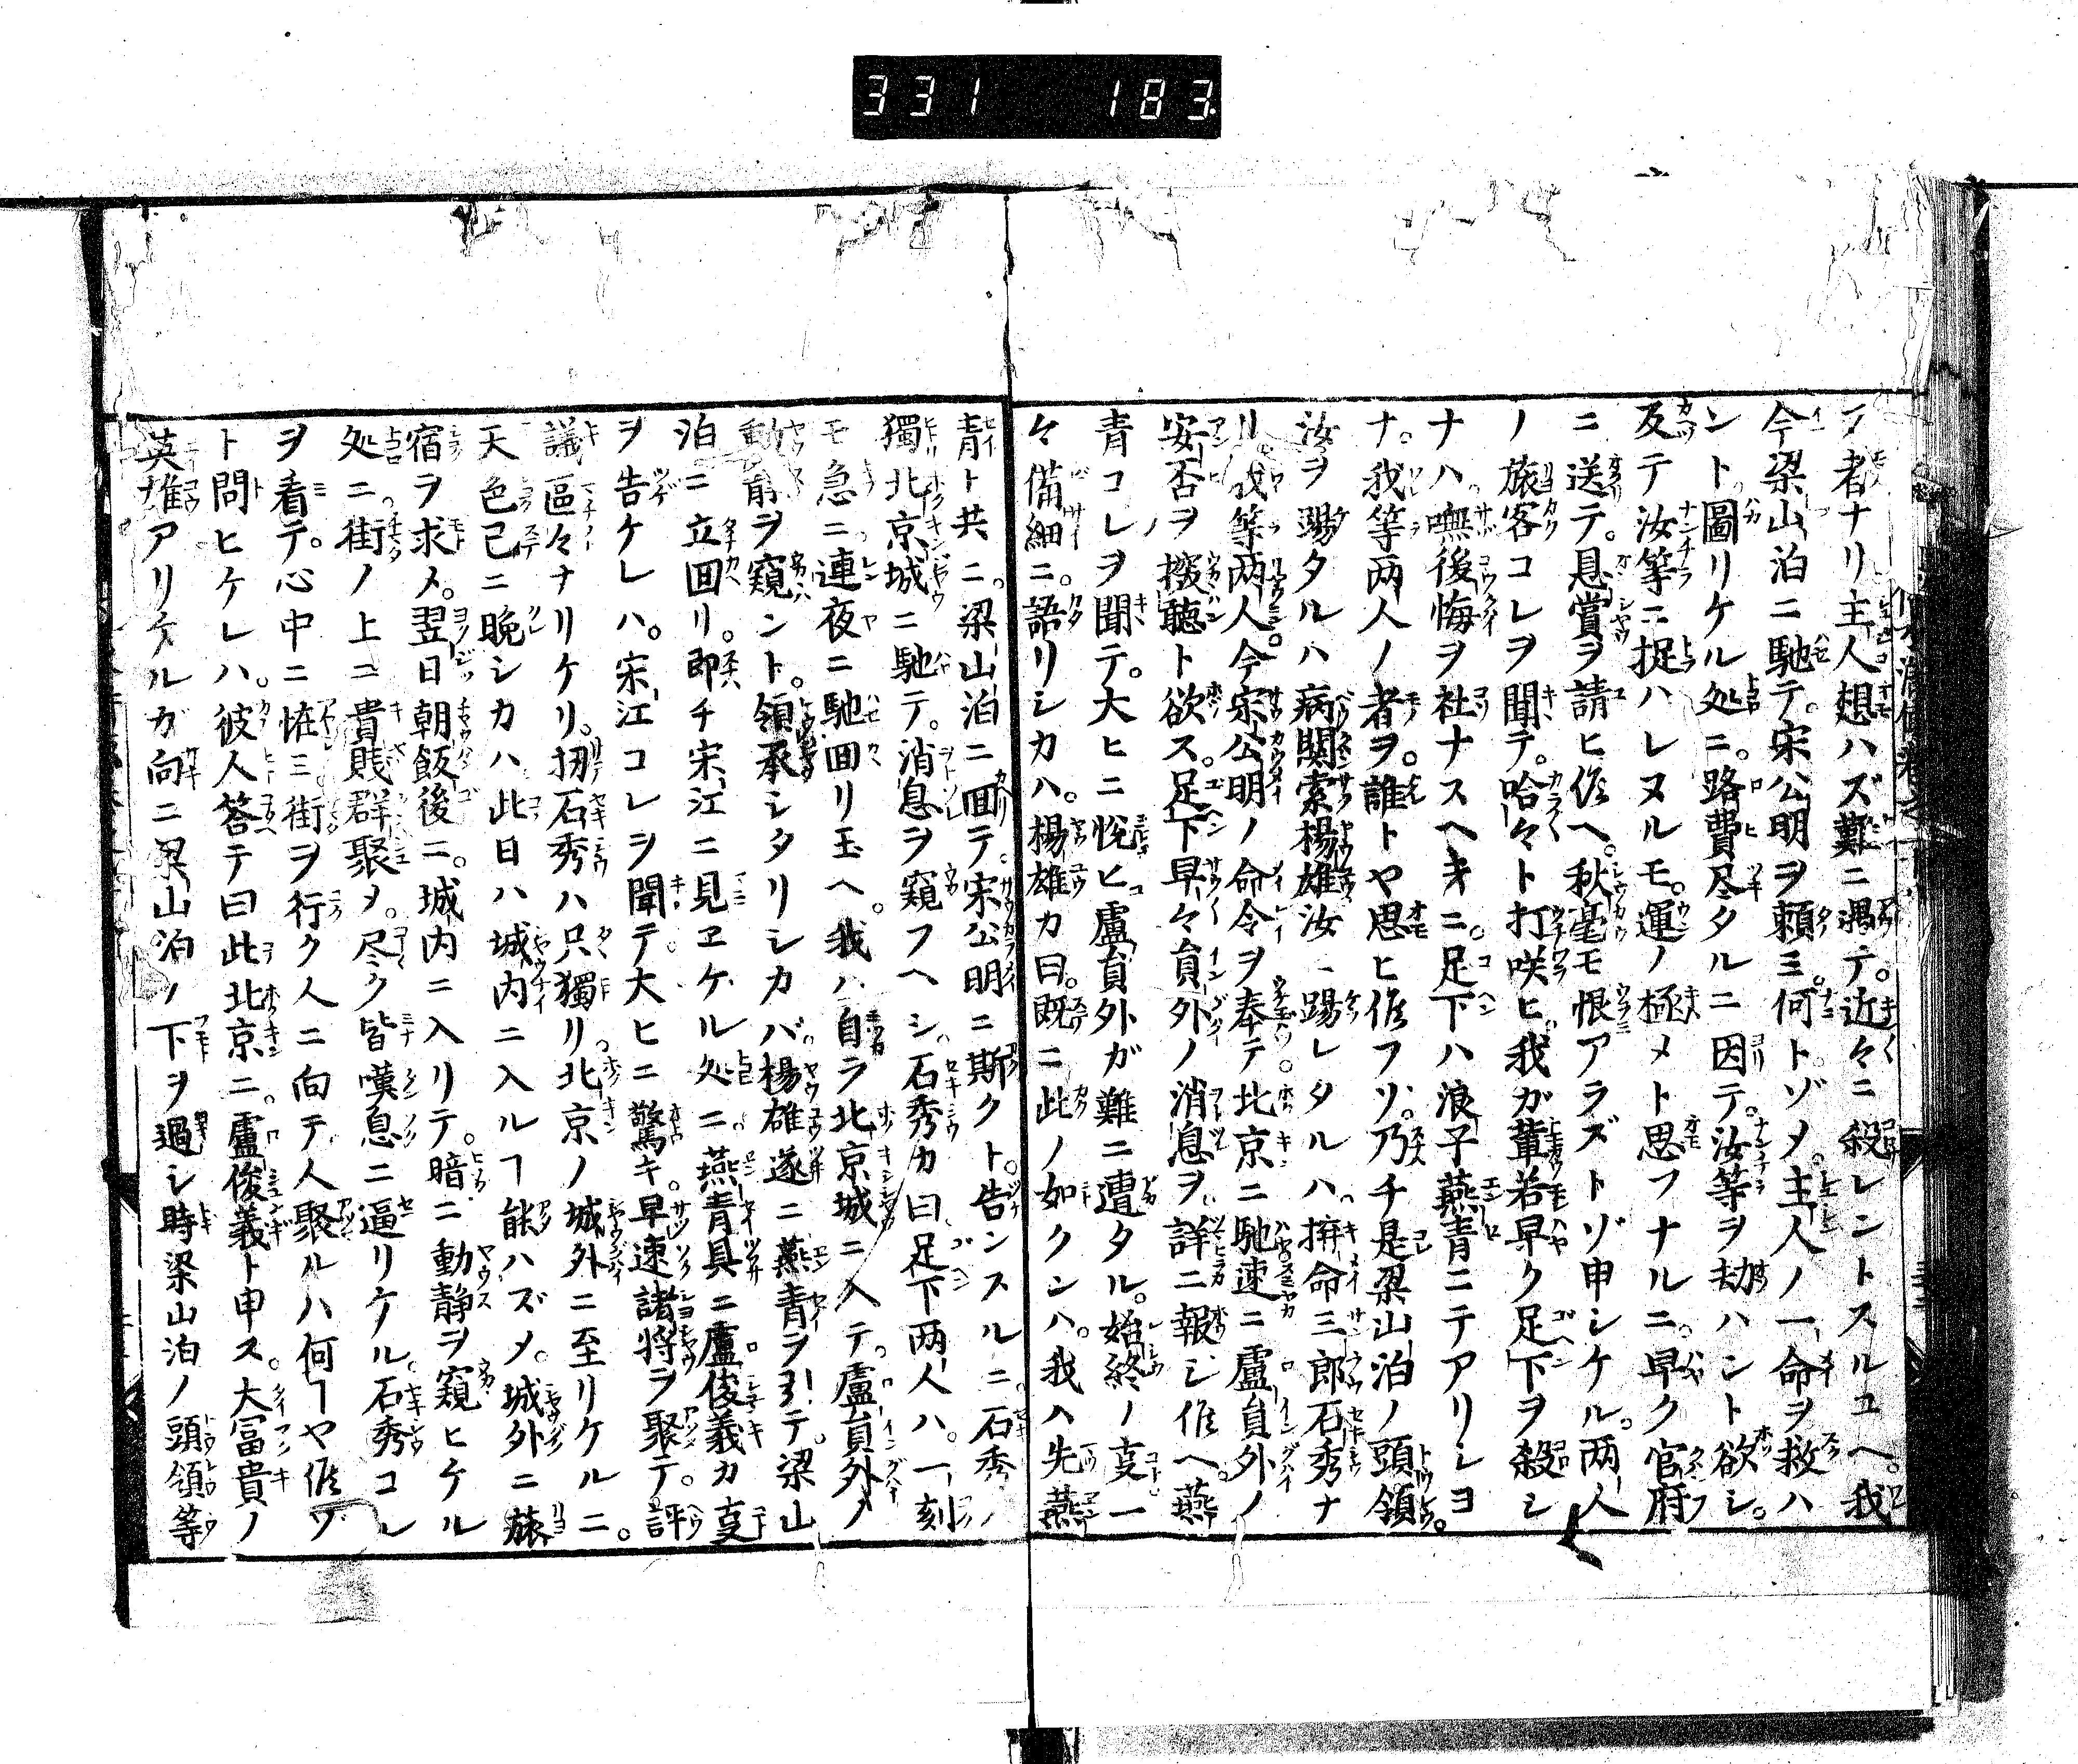 331 183
フ者ナリ主人想ハズ難ニ遇テ。近々ニ殺レントスルユヘ。我
今梁山泊ニ馳テ。宋公明ヲ頼ミ。何トゾメ。主人ノ一命ヲ救ハ
ント。圖リケル処ニ。路費尽タルニ因テ。汝等ヲ劫ハント欲シ。
反テ汝等ニ捉ハレヌルモ。運ノ極メト思フナルニ。早ク官府
ニ送テ。恩賞ヲ請ヒ候ヘ。秋毫モ恨アラズトゾ申シケル。两人
ノ旅客コレヲ聞テ。哈々ト打咲ヒ。我ガ輩若早ク足下ヲ殺シ
ナハ。嘸後悔ヲ社ナスヘキニ。足下ハ浪子燕青ニテアリシヨ
ナ。我等两人ノ者ヲ。誰トヤ思ヒ候フゾ。乃チ是梁山泊ノ頭領。
汝ヲ踢タルハ病関索楊雄汝ニ踢レタルハ。拚命三郎石秀ナ
リ。我等两人今宗公明ノ命令ヲ奉テ北京ニ馳速ニ盧員外ノ
安否ヲ探聴ト欲ス。足下早々員外ノ消息ヲ。詳ニ報シ候ヘ。燕
青コレヲ聞テ。大ヒニ悦ヒ盧員外ガ難ニ遭タル。始終ノ㕝一
々備細ニ。語リシカハ。楊雄カ曰。既ニ此ノ如クンハ。我ハ先燕
青ト共ニ。梁山泊ニ回テ。宋公明ニ斯クト。告ンスルニ。石秀
獨北京城ニ馳テ。消息ヲ窺フヘシ。石秀カ曰足下两人ハ。一刻
モ急ニ連夜ニ馳回リ玉ヘ。我ハ自ラ北京城ニ入テ。盧員外ノ
動静ヲ窺ント。領承シタリシカバ。楊雄遂ニ燕青ヲ引テ。梁山
泊ニ立回リ。即チ宋江ニ見ヱケル処ニ。燕青具ニ盧俊義カ㕝
ヲ告ケレハ。宋江コレヲ聞テ。大ヒニ驚キ。早速諸将ヲ聚テ。評
議區々ナリケリ。扨石秀ハ只獨リ。北京ノ城外ニ至リケルニ。
天色已ニ晩シカハ此日ハ城内ニ入ルヿ能ハズメ。城外ニ旅
宿ヲ求メ。翌日朝飯後ニ。城内ニ入リテ。暗ニ動静ヲ窺ヒケル
処ニ。街ノ上ニ貴賎群聚メ。尽ク皆嘆息ニ逼リケル。石秀コレ
ヲ看テ。心中ニ恠ミ。街ヲ行ク人ニ向テ。人聚ルハ何ヿヤ候ワ
ト問ヒケレハ。彼人答テ曰此北京ニ。盧俊義ト申ス。大冨貴ノ
英雄アリケルガ向ニ梁山泊ノ下ヲ過シ時梁山泊ノ頭領等